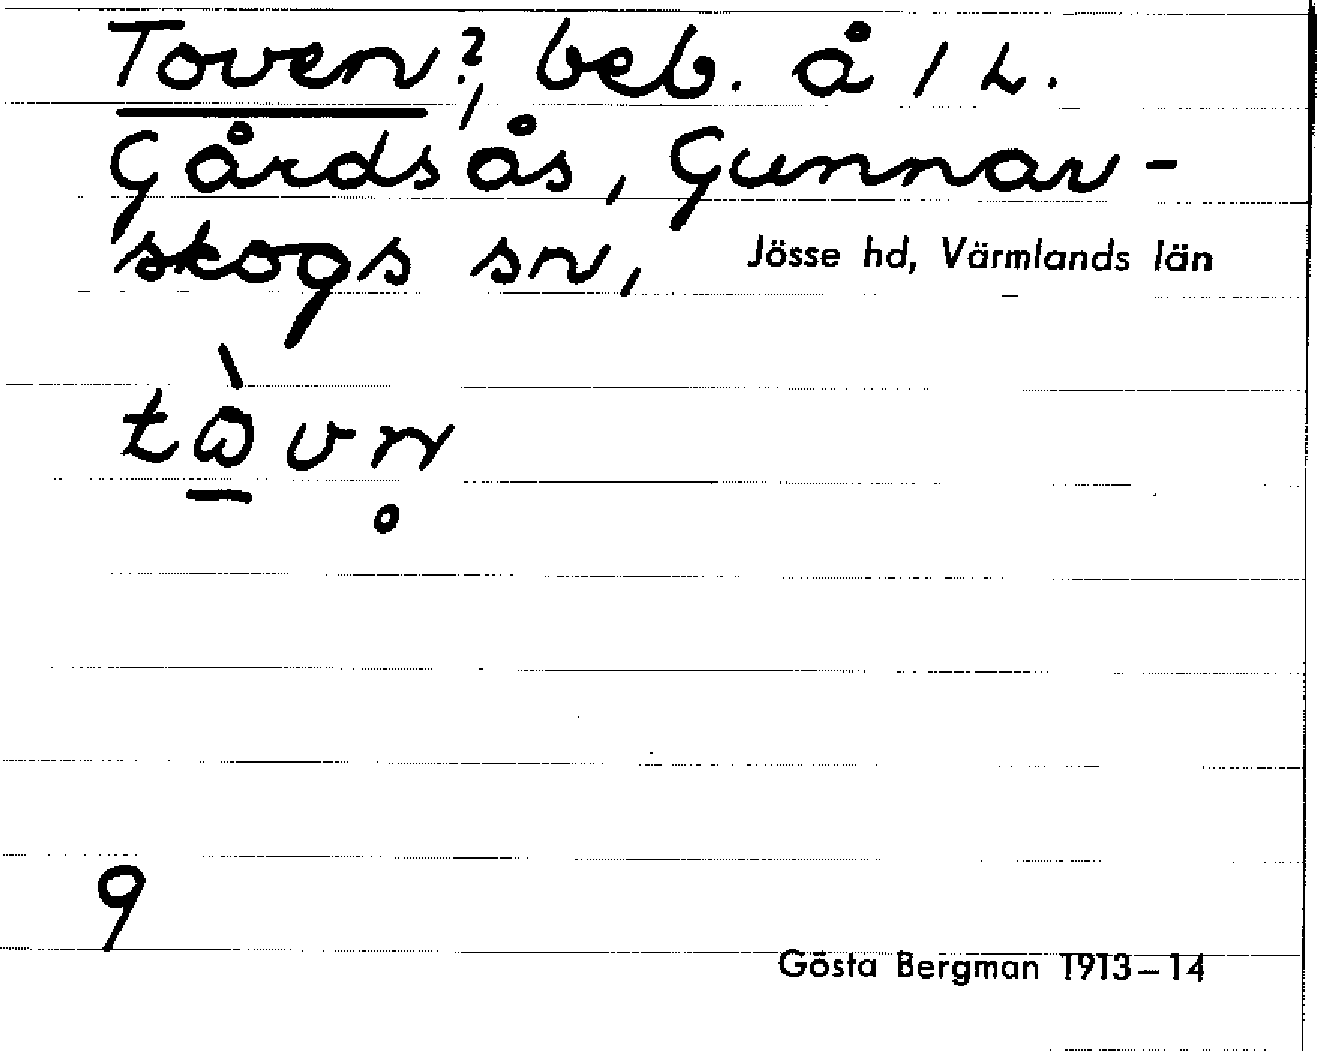 Toven?, beb. å 1 L.
Gårdsås, Gunnar-
skogs sn, Jösse hd, Värmlands län
9
Gösta Bergman 1913–14